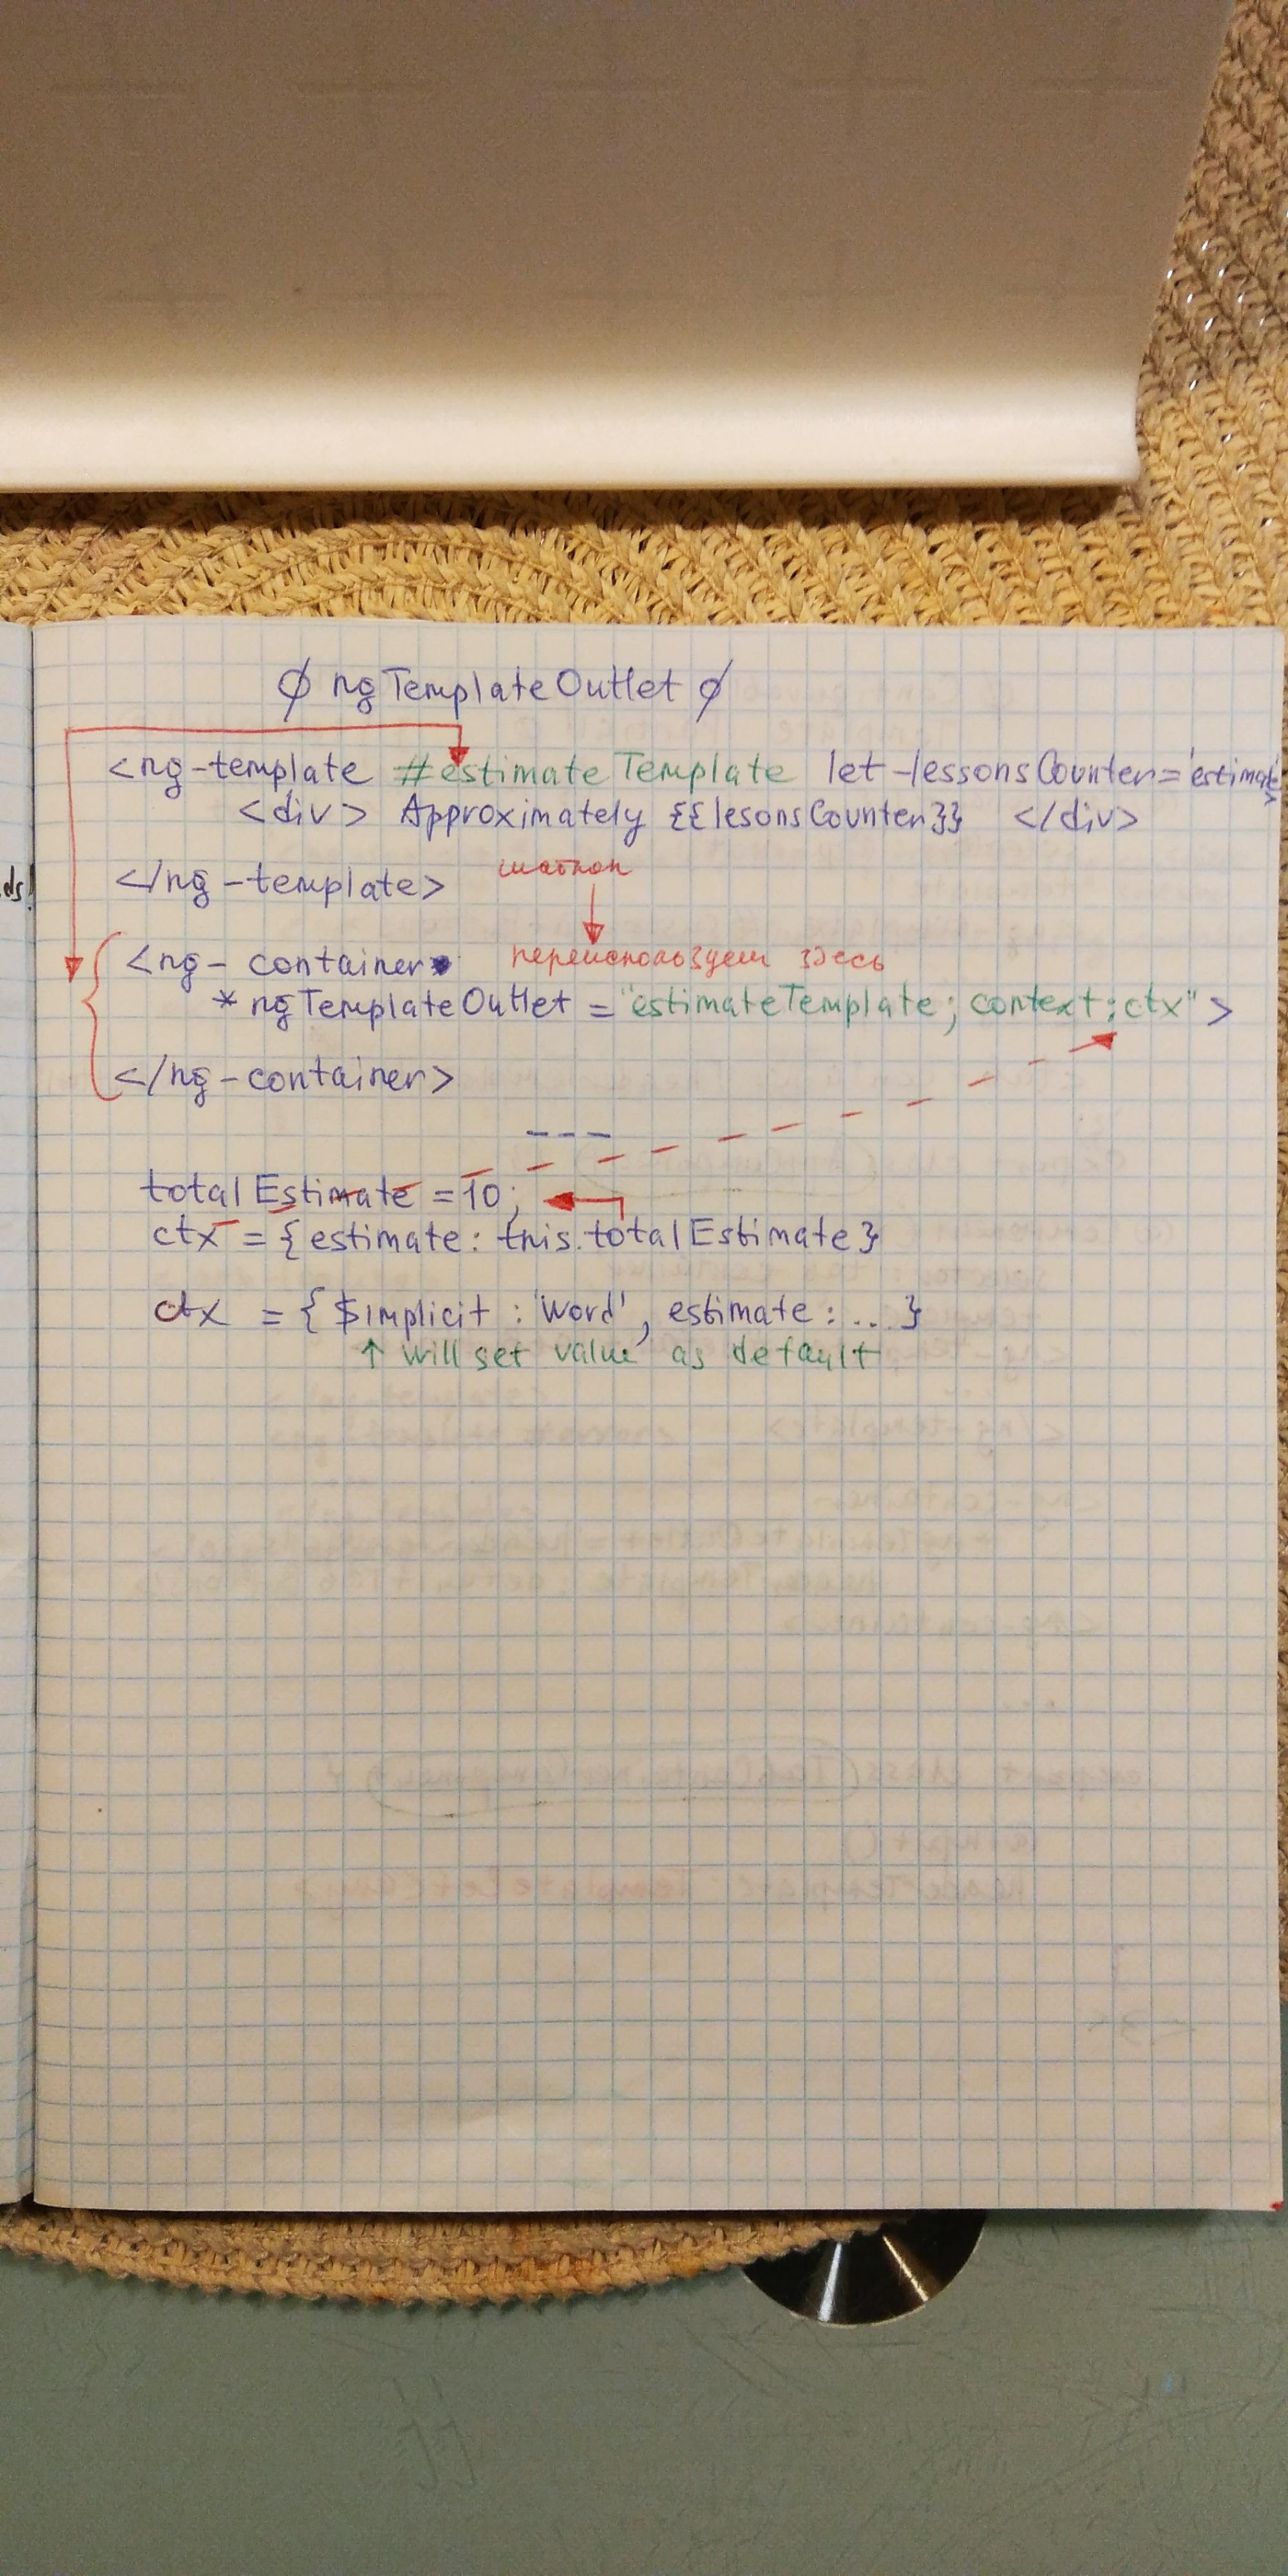 ∅ ngTemplateOutlet ∅
<ng-template #estimateTemplate let-lessonsCounter='estimate
>
<div> Approximately {{lesonsCounter}} </div>
ds!
</ng-template>
шаблон
<ng-container
переиспользуем здесь
*ngTemplateOutlet = "estimateTemplate; context: ctx" >
</ng-container>
totalEstimate = 10;
ctx = {estimate: this.totalEstimate}
ctx = {$implicit : 'Word', estimate: ... }
↑ will set value as default